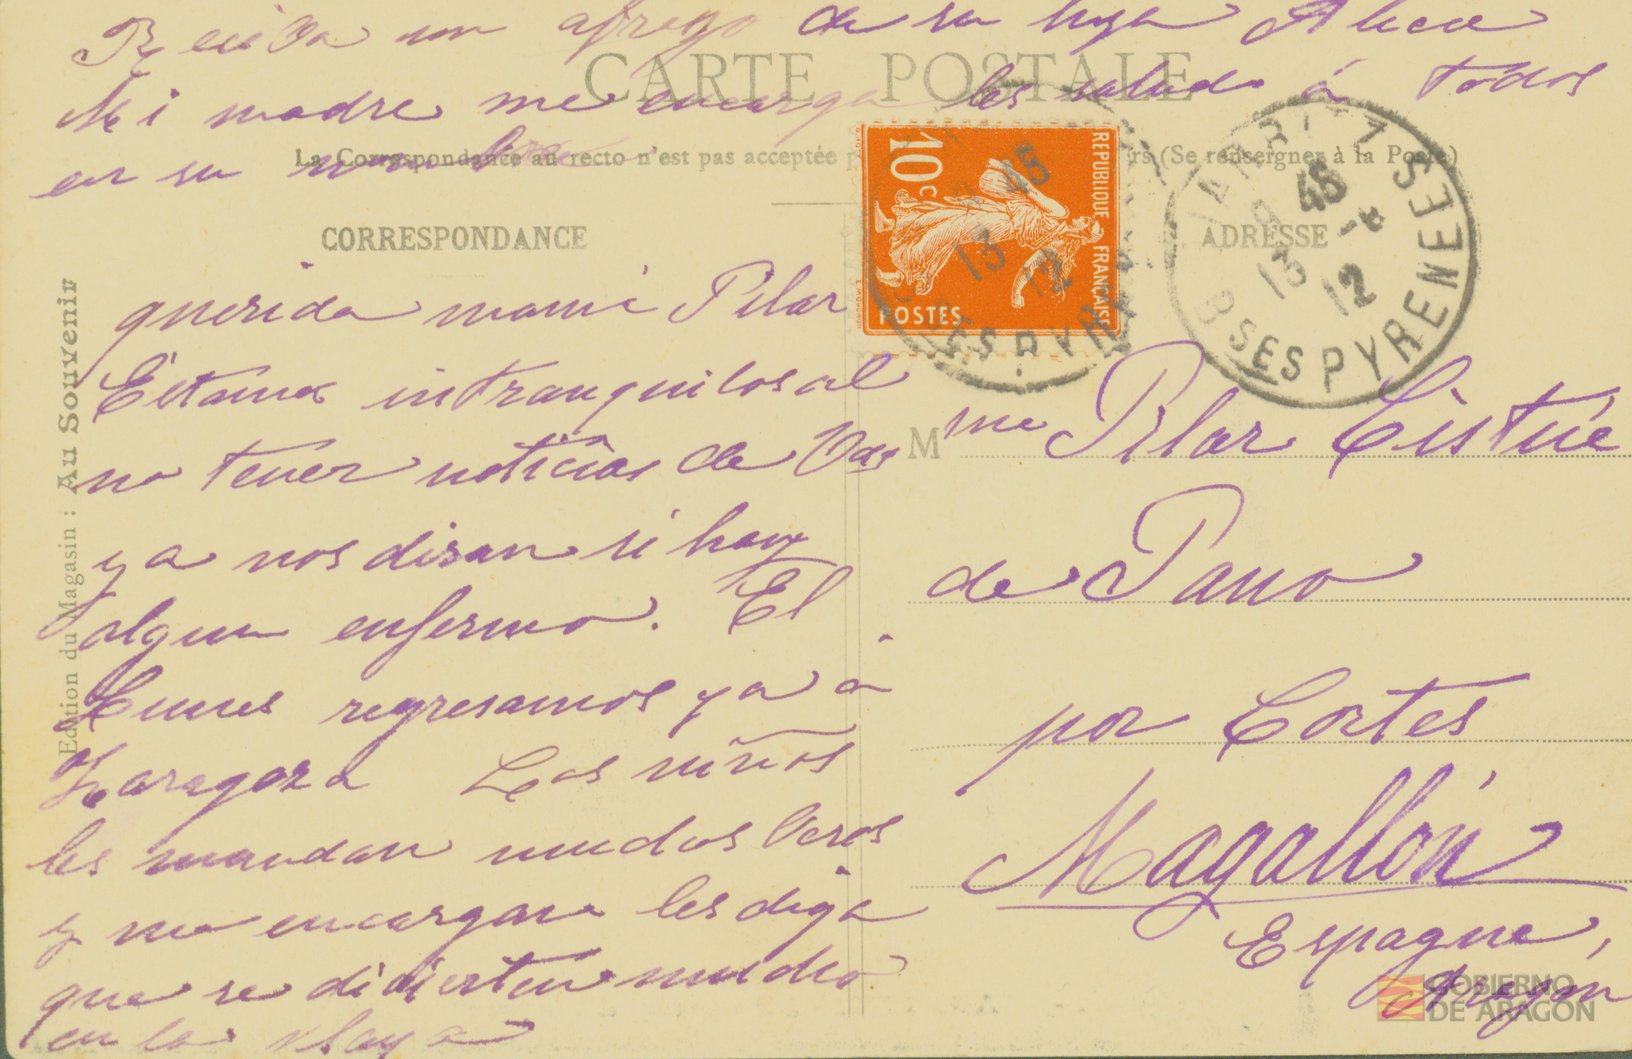 Reciba un abrazo de su hija Alicia
Mi madre me encarga les salude á todos
en su nombre
CARTE POSTALE
La Correspondance au recto n'est pas acceptée p rs (Se renseigner à la Poste)
CORRESPONDANCE
ADRESSE
REPUBLIQUE FRANÇAISE
10c
POSTES
BIARRITZ
Bses PYRENEES
13 45
9 -8
12
querida mamá Pilar
Estamos intranquilos al
no tener noticias de Vds
ya nos dirán si hay
algun enfermo. El
Lunes regresamos ya á
Zaragoza Los niños
les mandan muchos besos
y me encargan les diga
que se divierten mucho
en la playa
Mme Pilar Cistué
de Pano
por Cortes
Magallón
Espagne,
Aragón
Edition du Magasin : Au Souvenir
GOBIERNO
DE ARAGON